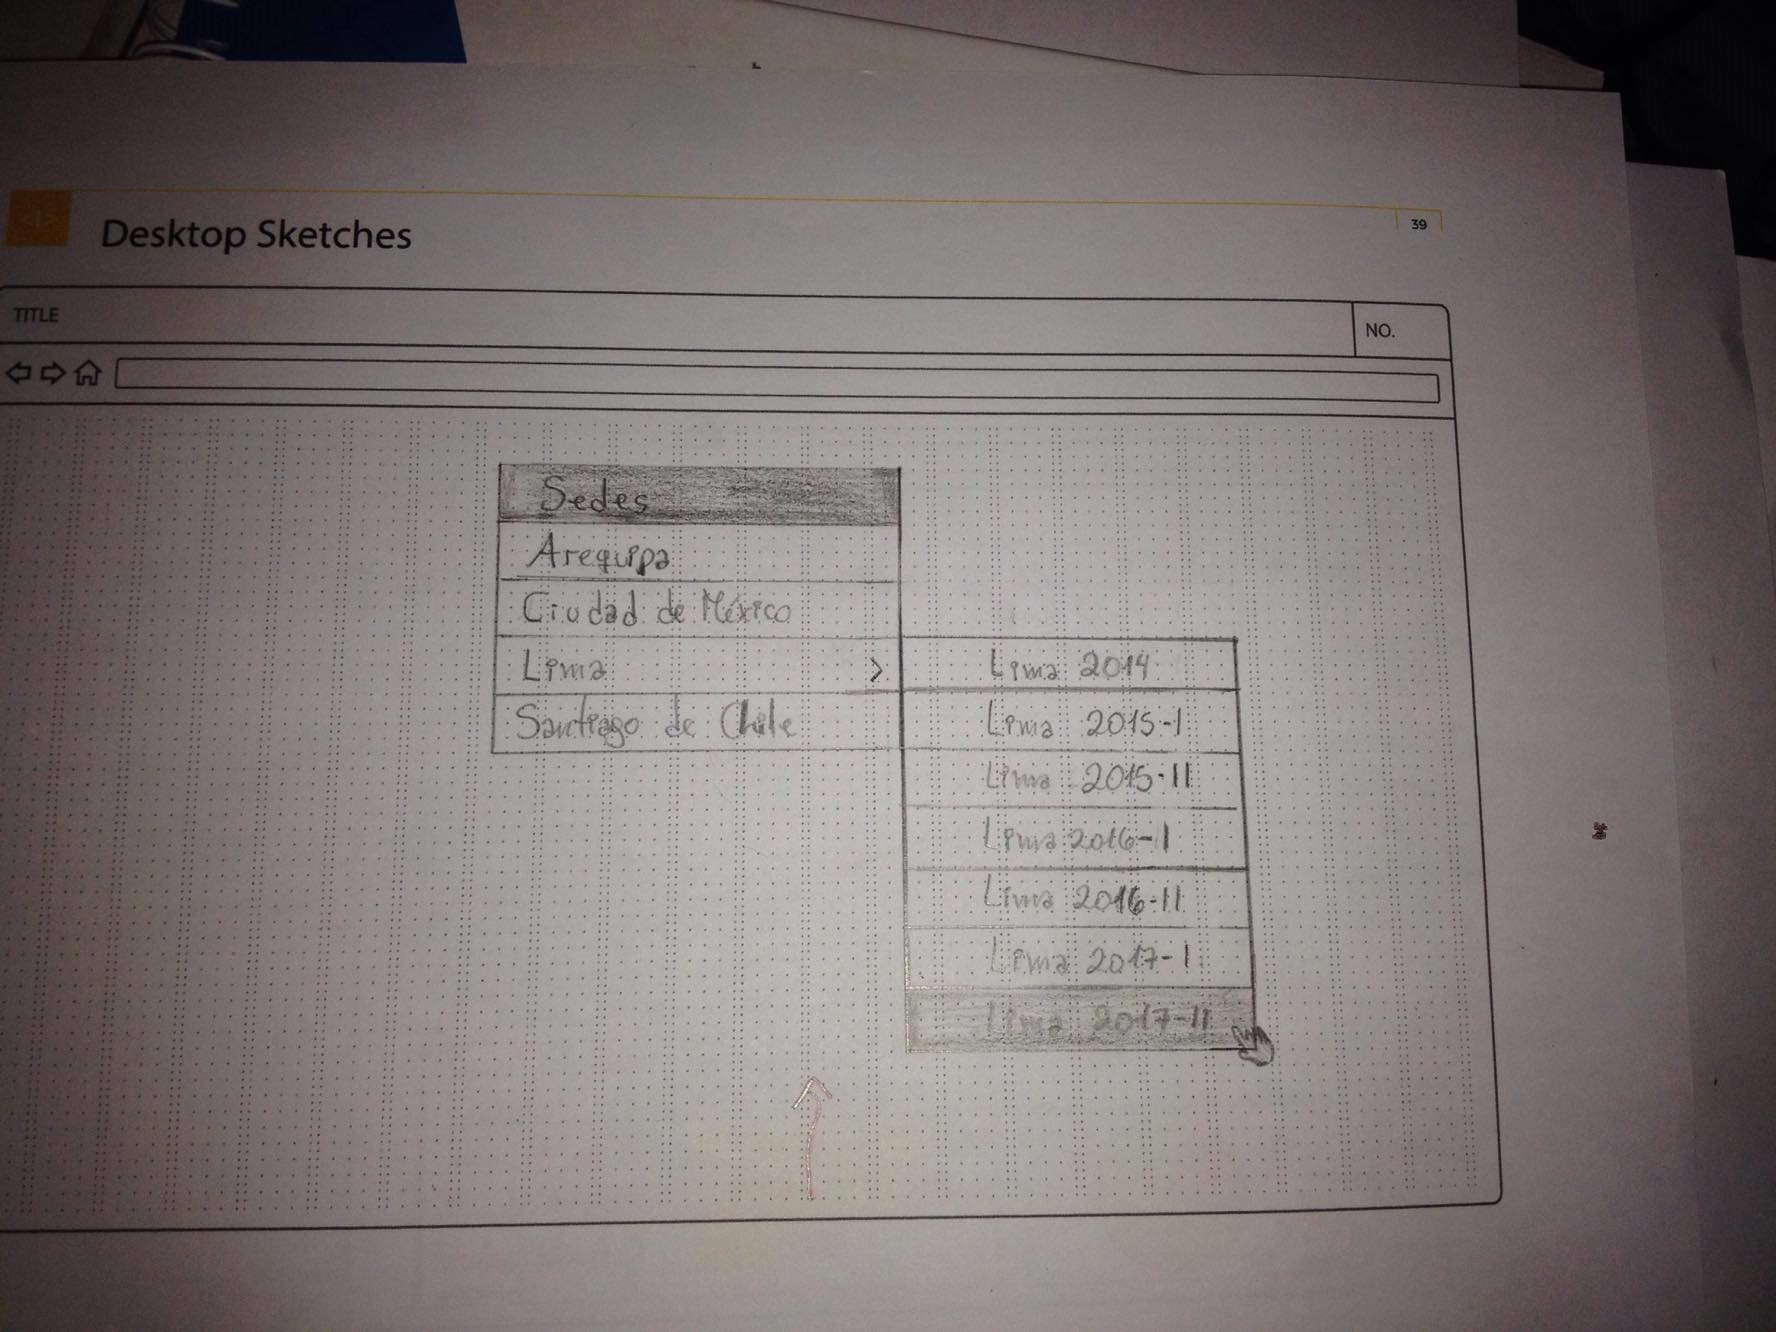 Desktop Sketches
39
TITLE
NO.
Sedes
Arequipa
Ciudad de México
Lima >
Santiago de Chile
Lima 2014
Lima 2015-I
Lima 2015-II
Lima 2016-I
Lima 2016-II
Lima 2017-I
Lima 2017-II